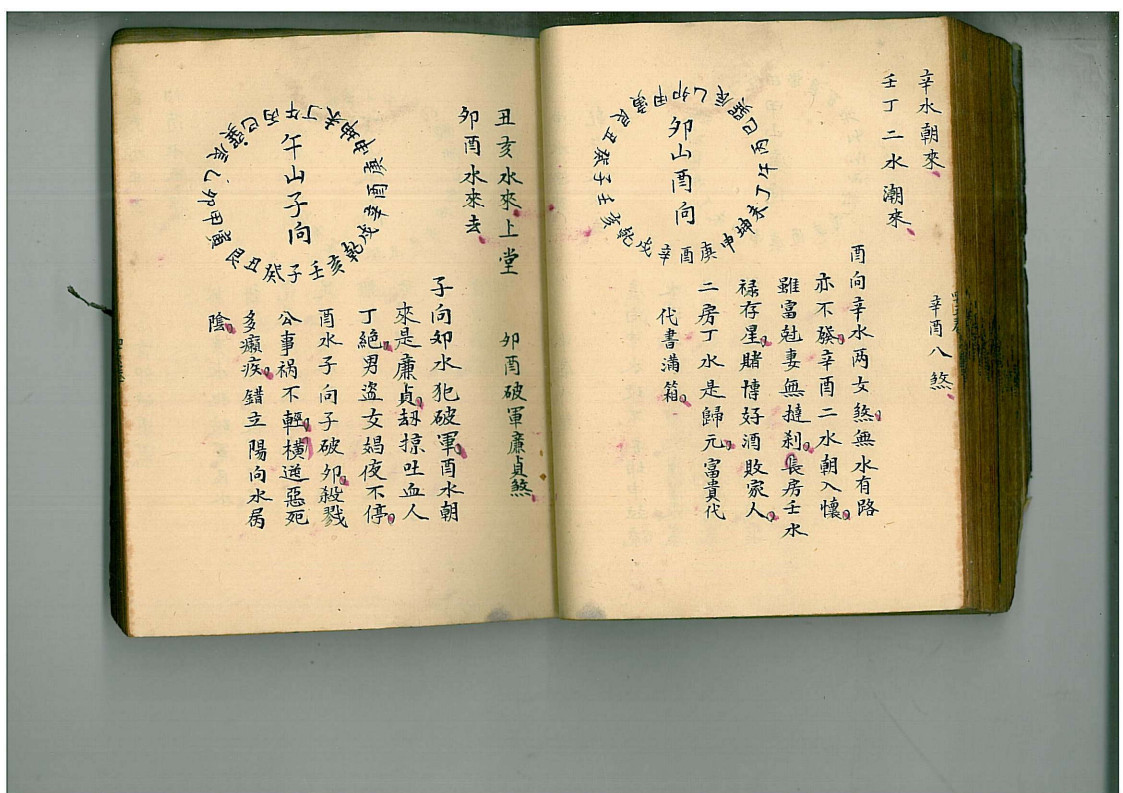 辛水朝來
壬丁二水潮來
辛酉八煞
卯山酉向
巽巳丙午丁未坤申庚酉辛戌乾亥壬子癸丑艮寅甲卯乙辰
酉向辛水两女煞無水有路
亦不發辛酉二水朝入懷
雖富尅妻無撻刹長房壬水
禄存星賭博好酒敗家人
二房丁水是歸元富貴代
代書滿箱
丑亥水來上堂
卯酉水來去
卯酉破軍廉貞煞
午山子向
巽巳丙午丁未坤申庚酉辛戌乾亥壬子癸丑艮寅甲卯乙辰
子向卯水犯破軍酉水朝
來是廉貞刼掠吐血人
丁絕男盜女娼夜不停
酉水子向子破卯殺戮
公事禍不輕橫逆惡死
多癲疾錯立陽向水局
陰